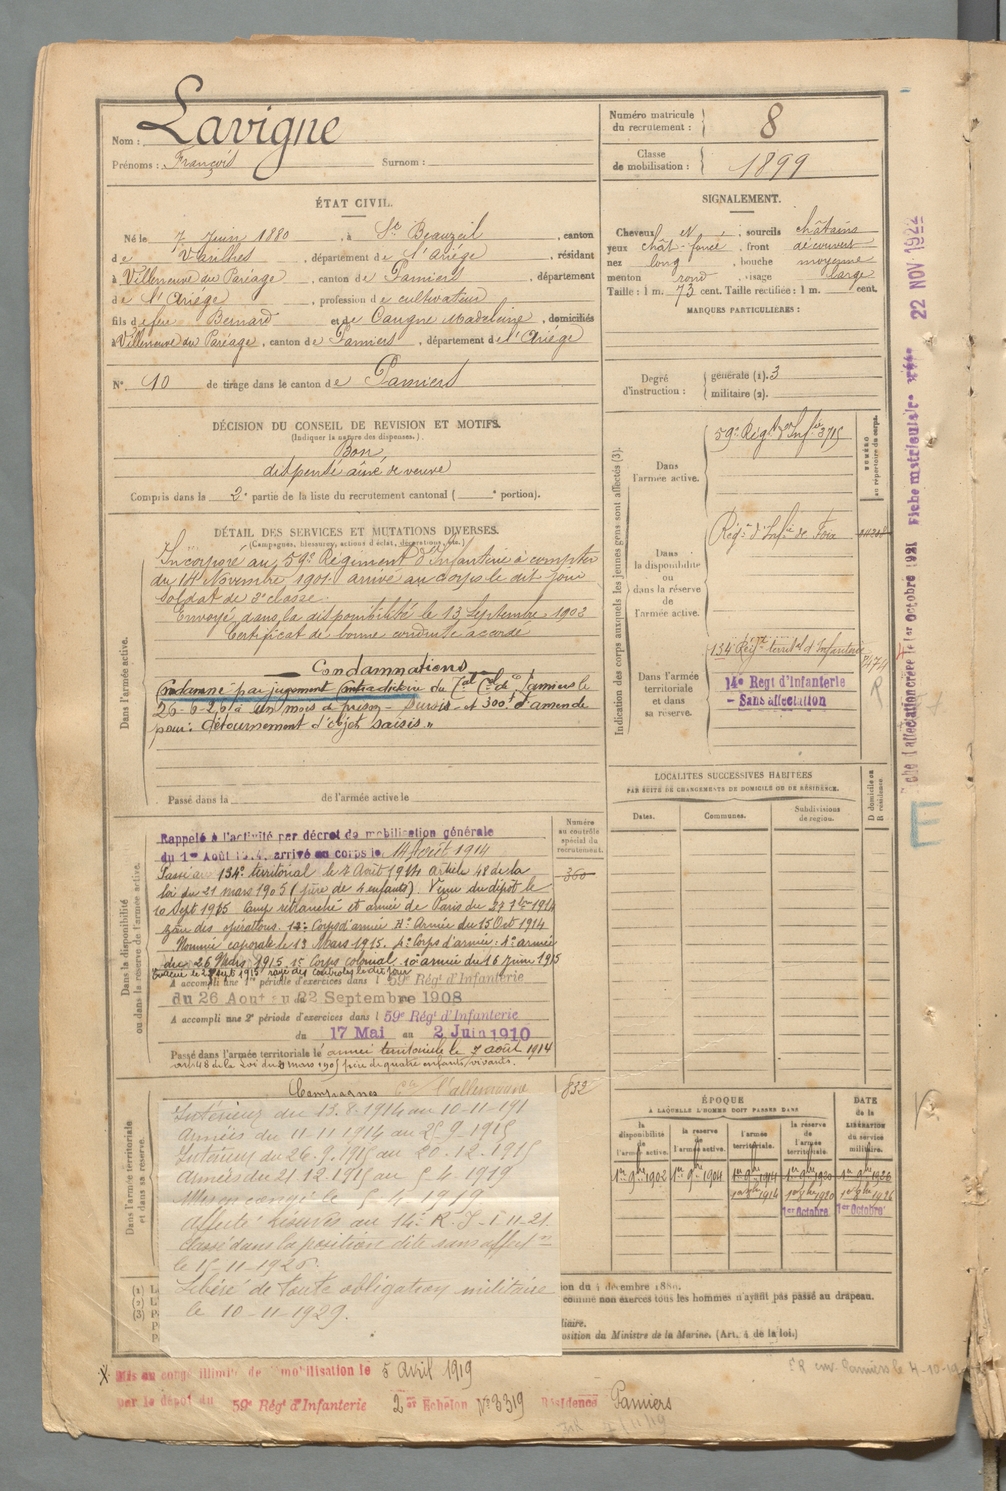 Nom : Lavigne
Prénoms : François Surnom :
Numéro matricule du recrutement : 8
Classe de mobilisation : 1899
ÉTAT CIVIL.
Né le 7 Juin 1880, à St Beauzeil, canton
de Varilhes, département de l'Ariége, résidant
à Villeneuve du Paréage, canton de Pamiers, département
de l'Ariége, profession de cultivateur
fils de feu Bernard et de Caugne Madeleine, domiciliés
à Villeneuve du Paréage, canton de Pamiers, département de l'Ariége
N° 10 de tirage dans le canton de Pamiers
SIGNALEMENT.
Cheveux et sourcils châtains
yeux chât-foncé, front découvert
nez long, bouche moyenne
menton rond, visage large
Taille : 1 m. 73 cent. Taille rectifiée : 1 m. cent.
MARQUES PARTICULIÈRES :
Degré d'instruction : générale (1). 3
militaire (2).
DÉCISION DU CONSEIL DE REVISION ET MOTIFS.
(Indiquer la nature des dispenses.)
Bon
dispensé aîné de veuve
Compris dans la 2e partie de la liste du recrutement cantonal ( e portion).
DÉTAIL DES SERVICES ET MUTATIONS DIVERSES.
(Campagnes, blessures, actions d'éclat, décorations, etc.)
Dans l'armée active.
Incorporé au 59e Régiment d'Infanterie à compter
du 14 Novembre 1901 arrivé au corps le dit jour
soldat de 2e classe.
Envoyé dans la disponibilité le 13 Septembre 1902
Certificat de bonne conduite accordé
Condamnations
Condamné par jugement contradictoire du Pamiers le
26-6-26 à un mois de prison - sursis - et 300f d'amende
pour : détournement d'objet saisis "
Passé dans la de l'armée active le
Indication des corps auxquels les jeunes gens sont affectés (3).
NUMÉRO au répertoire du corps.
Dans l'armée active.
59e Régt d'Infie 3715
Dans la disponibilité ou dans la réserve de l'armée active.
Régt d'Infie de Foix
Dans l'armée territoriale et dans sa réserve.
134 Régt territ d'Infanterie
14e Regt d'Infanterie
- Sans affectation
LOCALITÉS SUCCESSIVES HABITÉES
PAR SUITE DE CHANGEMENTS DE DOMICILE OU DE RÉSIDENCE.
Dates. Communes. Subdivisions de région. D domicile ou R résidence.
Dans la disponibilité ou dans la réserve de l'armée active.
Numéro au contrôle spécial du recrutement.
360
Rappelé à l'activité par décret de mobilisation générale
du 1er Août 1914, arrivé au corps le 14 Août 1914
Passé au 134e territorial le 7 Août 1914 article 48 de la
loi du 21 mars 1905 (père de 4 enfants). Venu du dépôt le
10 Sept 1915 Camp retranché et armée de Paris du 1914
zone des opérations. Corps d'armée Armée du 15 Oct 1914
Nommé caporal le 13 Mars 1915. 4e Corps d'armée :
du 26 Mars 1915. Corps colonial 10e armée du 16 Juin 1915
Évacué le 25 Sept 1915 rayé des contrôles le dit jour
A accompli une 1re période d'exercices dans l 59e Régt d'Infanterie
du 26 Aout au 22 Septembre 1908
A accompli une 2e période d'exercices dans l 59e Régt d'Infanterie
du 17 Mai au 2 Juin 1910
Passé dans l'armée territoriale le armée territoriale le 7 août 1914
art 48 de la loi du mars 1905 père de quatre enfants vivants.
Dans l'armée territoriale et dans sa réserve.
832
Campagnes l'allemagne
Intérieur du 13.8-1914 au 10-11-191
Armées du 11-11 1914 au 25-9-1915
Intérieur du 26-9-1915 au 20-12-1915
Armées du 21 12-1915 au 5-4-1919
Mis en congé le 5 4 1919
Affecté réserve au 14e R.I - 1 11-21
Classé dans la position dite sans affecton
le 15-11-1926.
Libéré de toute obligation militaire
le 10-11-1929.
ÉPOQUE
À LAQUELLE L'HOMME DOIT PASSER DANS
DATE de la LIBÉRATION du service militaire.
la disponibilité de l'armée active. la réserve de l'armée active. l'armée territoriale. la réserve de l'armée territoriale.
1er 9bre 1902 1er 9bre 1904 1er 9bre 1914 1er 9bre 1920 1er 9bre 1926
1er 8bre 1914 1er 8bre 1920 1er 8bre 1926
1er Octobre 1er Octobre
(1) L
(2) L
(3) P
ion du 4 décembre 1889.
comme non exercés tous les hommes n'ayant pas passé au drapeau.
liaire.
position du Ministre de la Marine. (Art. 4 de la loi.)
X Mis en congé illimité de mobilisation le 5 Avril 1919
par le dépôt du 59e Régt d'Infanterie 2er Echelon N° 3319 Résidence Pamiers
Fiche d'affectation créée le 1er Octobre 1921 Fiche matriculaire créée 22 NOV 1922
E